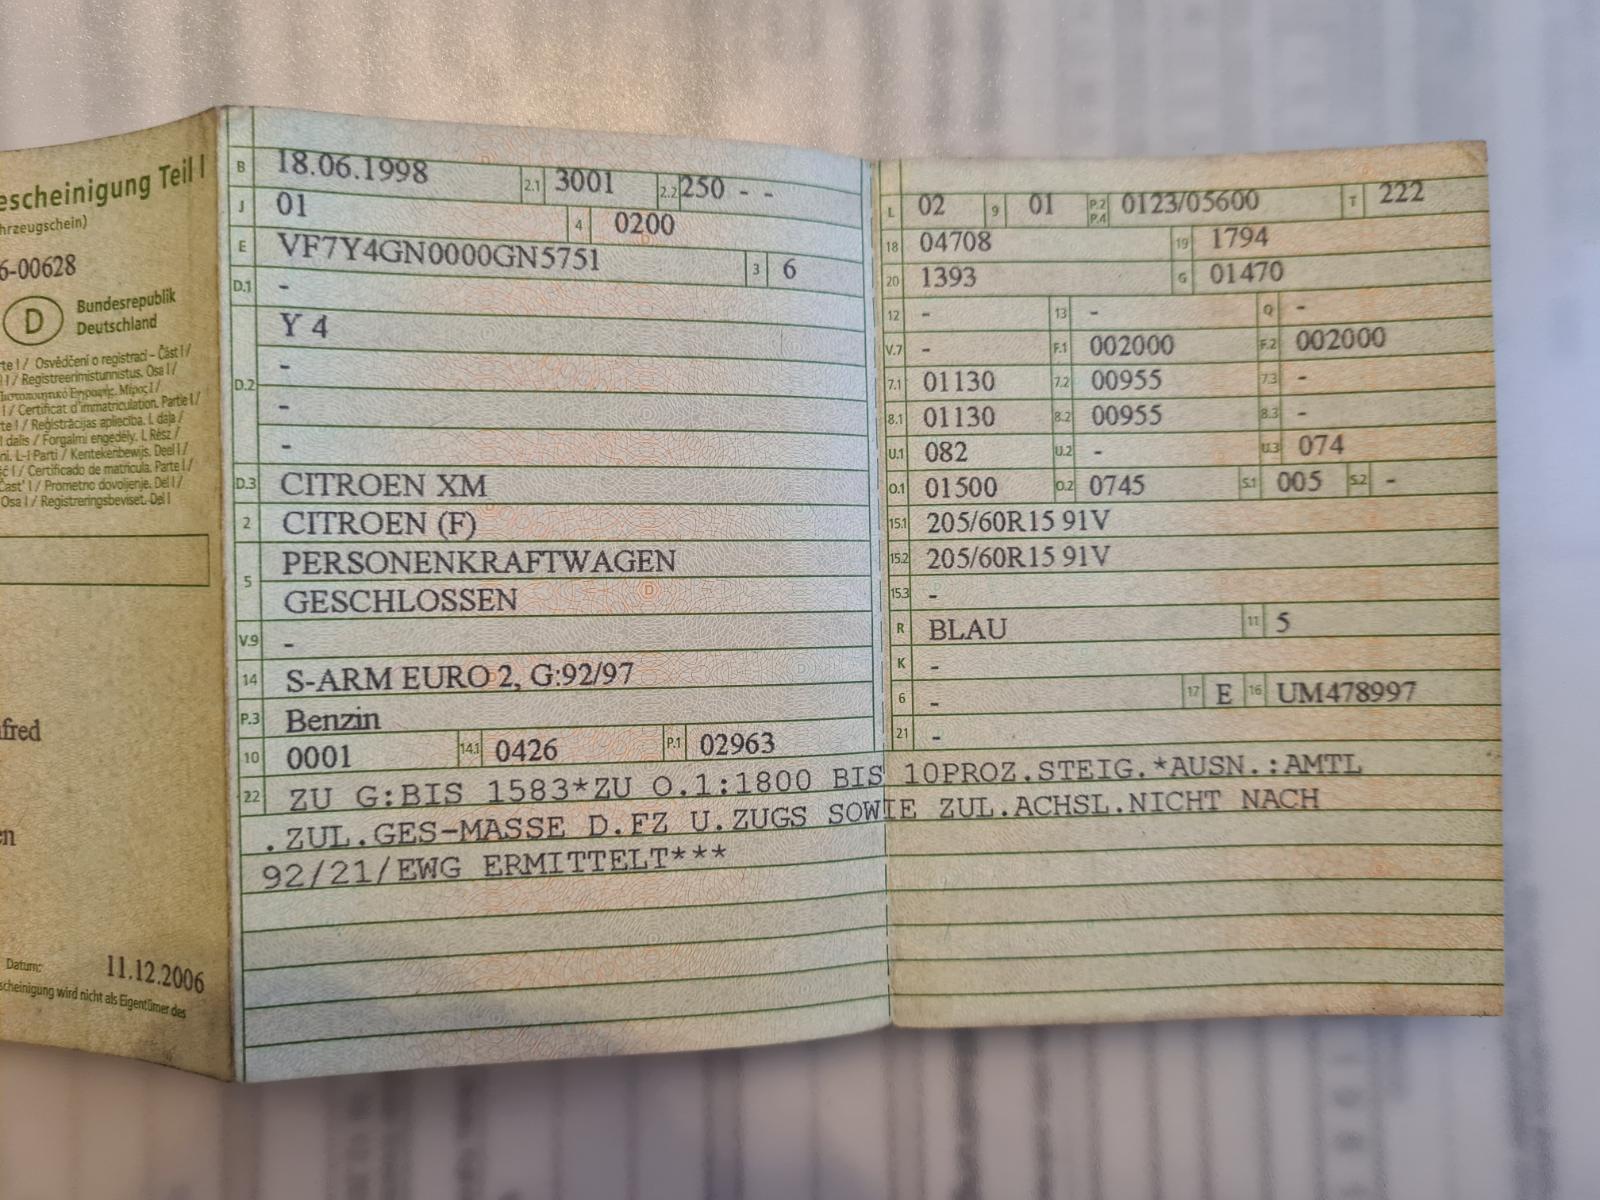 escheinigung Teil I
hrzeugschein)
6-00628
D
Bundesrepublik
Deutschland
rte I / Osvědčení o registraci – Část I /
I / Registreerimistunnistus. Osa I /
I / Certificat d'immatriculation. Partie I /
te I / Reģistrācijas apliecība. I. daļa /
I dalis / Forgalmi engedély. I. Rész /
ni. L-I Parti / Kentekenbewijs. Deel I /
ć I / Certificado de matrícula. Parte I /
Časť I / Prometno dovoljenje. Del I /
Osa I / Registreringsbeviset. Del I
fred
en
Datum: 11.12.2006
scheinigung wird nicht als Eigentümer des
B 18.06.1998 2.1 3001 2.2 250 - -
J 01 4 0200
E VF7Y4GN0000GN5751 3 6
D.1 -
Y 4
-
D.2 -
-
D.3 CITROEN XM
2 CITROEN (F)
5 PERSONENKRAFTWAGEN
GESCHLOSSEN
V.9 -
14 S-ARM EURO 2, G:92/97
P.3 Benzin
10 0001 14.1 0426 P.1 02963
L 02 9 01 P.2 P.4 0123/05600 T 222
18 04708 19 1794
20 1393 G 01470
12 - 13 - Q -
V.7 - F.1 002000 F.2 002000
7.1 01130 7.2 00955 7.3 -
8.1 01130 8.2 00955 8.3 -
U.1 082 U.2 - U.3 074
O.1 01500 O.2 0745 S.1 005 S.2 -
15.1 205/60R15 91V
15.2 205/60R15 91V
15.3 -
R BLAU 11 5
K -
6 - 17 E 16 UM478997
21 -
22 ZU G:BIS 1583*ZU O.1:1800 BIS 10PROZ.STEIG.*AUSN.:AMTL
.ZUL.GES-MASSE D.FZ U.ZUGS SOWIE ZUL.ACHSL.NICHT NACH
92/21/EWG ERMITTELT***